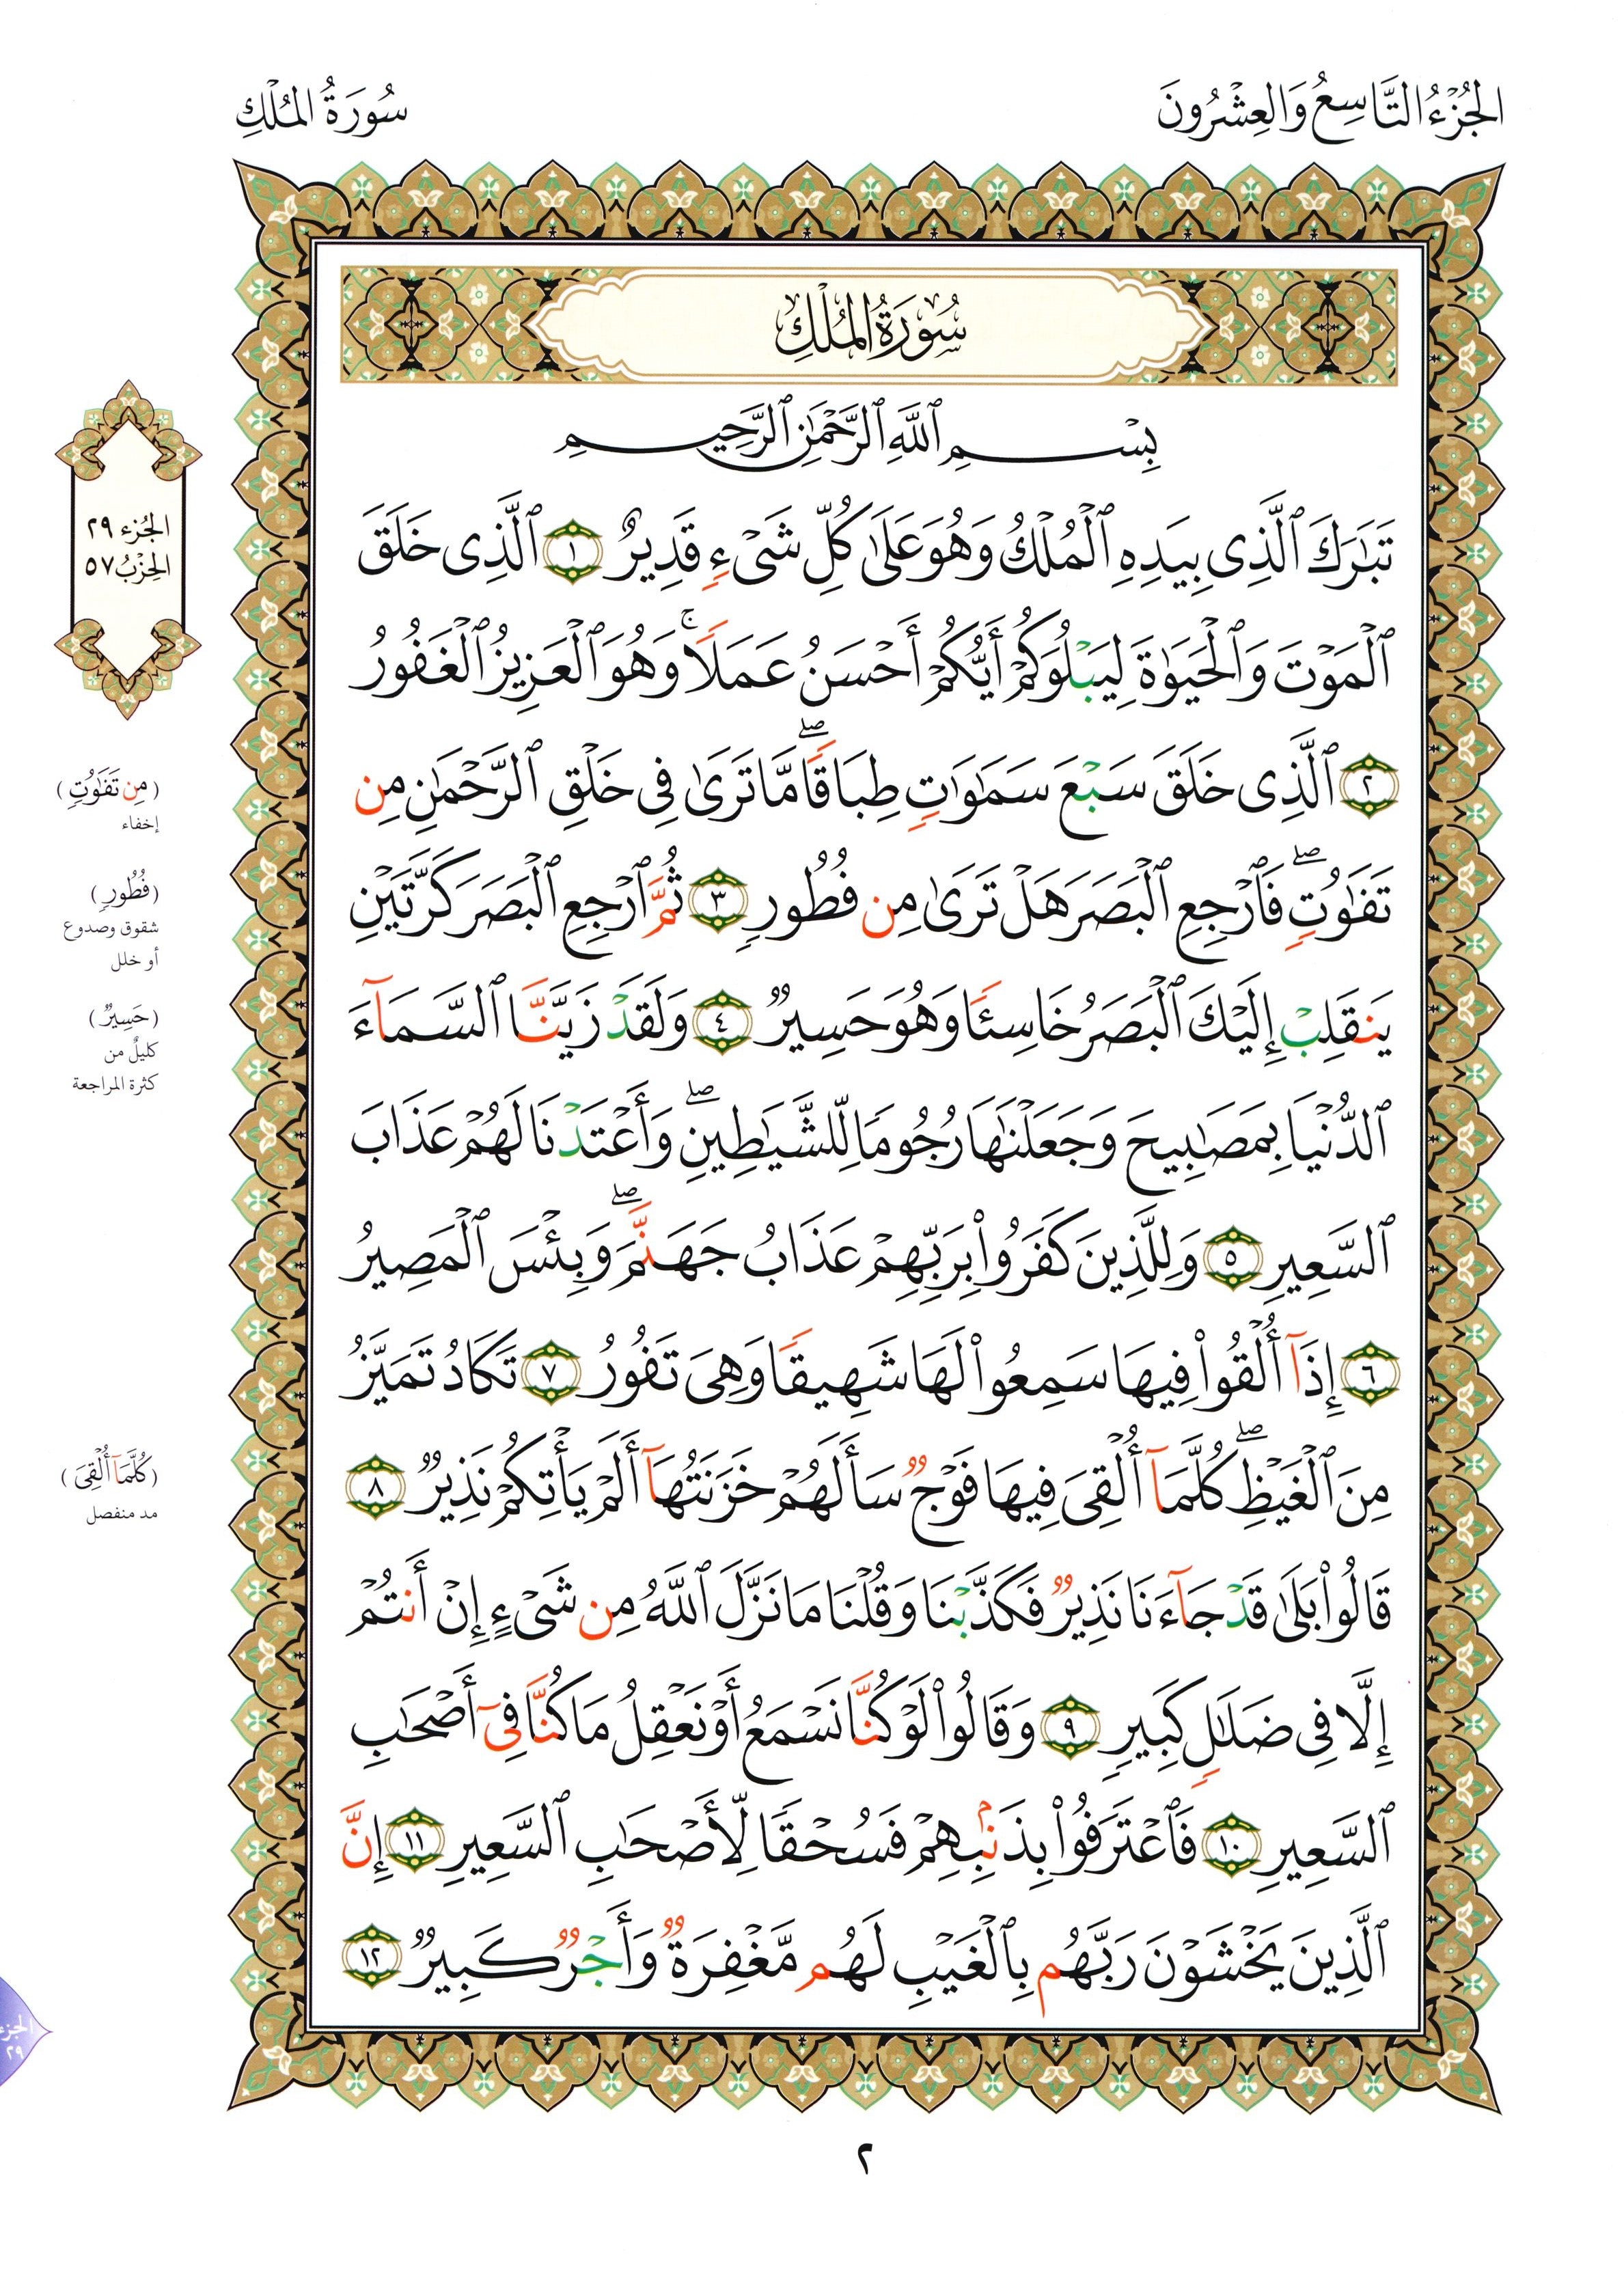 الجُزْءُ التَّاسِعُ وَالعِشْرُونَ
سُورَةُ المُلْكِ
سُورَةُ المُلْكِ
بِسْمِ ٱللَّهِ ٱلرَّحْمَٰنِ ٱلرَّحِيمِ
تَبَٰرَكَ ٱلَّذِى بِيَدِهِ ٱلْمُلْكُ وَهُوَ عَلَىٰ كُلِّ شَىْءٍ قَدِيرٌ ١ ٱلَّذِى خَلَقَ
ٱلْمَوْتَ وَٱلْحَيَوٰةَ لِيَبْلُوَكُمْ أَيُّكُمْ أَحْسَنُ عَمَلًا ۚ وَهُوَ ٱلْعَزِيزُ ٱلْغَفُورُ
٢ ٱلَّذِى خَلَقَ سَبْعَ سَمَٰوَٰتٍ طِبَاقًا ۖ مَّا تَرَىٰ فِى خَلْقِ ٱلرَّحْمَٰنِ مِن
تَفَٰوُتٍ ۖ فَٱرْجِعِ ٱلْبَصَرَ هَلْ تَرَىٰ مِن فُطُورٍ ٣ ثُمَّ ٱرْجِعِ ٱلْبَصَرَ كَرَّتَيْنِ
يَنقَلِبْ إِلَيْكَ ٱلْبَصَرُ خَاسِئًا وَهُوَ حَسِيرٌ ٤ وَلَقَدْ زَيَّنَّا ٱلسَّمَآءَ
ٱلدُّنْيَا بِمَصَٰبِيحَ وَجَعَلْنَٰهَا رُجُومًا لِّلشَّيَٰطِينِ ۖ وَأَعْتَدْنَا لَهُمْ عَذَابَ
ٱلسَّعِيرِ ٥ وَلِلَّذِينَ كَفَرُوا۟ بِرَبِّهِمْ عَذَابُ جَهَنَّمَ ۖ وَبِئْسَ ٱلْمَصِيرُ
٦ إِذَآ أُلْقُوا۟ فِيهَا سَمِعُوا۟ لَهَا شَهِيقًا وَهِىَ تَفُورُ ٧ تَكَادُ تَمَيَّزُ
مِنَ ٱلْغَيْظِ ۖ كُلَّمَآ أُلْقِىَ فِيهَا فَوْجٌ سَأَلَهُمْ خَزَنَتُهَآ أَلَمْ يَأْتِكُمْ نَذِيرٌ ٨
قَالُوا۟ بَلَىٰ قَدْ جَآءَنَا نَذِيرٌ فَكَذَّبْنَا وَقُلْنَا مَا نَزَّلَ ٱللَّهُ مِن شَىْءٍ إِنْ أَنتُمْ
إِلَّا فِى ضَلَٰلٍ كَبِيرٍ ٩ وَقَالُوا۟ لَوْ كُنَّا نَسْمَعُ أَوْ نَعْقِلُ مَا كُنَّا فِىٓ أَصْحَٰبِ
ٱلسَّعِيرِ ١٠ فَٱعْتَرَفُوا۟ بِذَنۢبِهِمْ فَسُحْقًا لِّأَصْحَٰبِ ٱلسَّعِيرِ ١١ إِنَّ
ٱلَّذِينَ يَخْشَوْنَ رَبَّهُم بِٱلْغَيْبِ لَهُم مَّغْفِرَةٌ وَأَجْرٌ كَبِيرٌ ١٢
الجُزء ٢٩
الحِزْبُ ٥٧
(مِن تَفَٰوُتٍ)
إخفاء
(فُطُورٍ)
شقوق وصدوع
أو خلل
(حَسِيرٌ)
كليلٌ من
كثرة المراجعة
(كُلَّمَآ أُلْقِىَ)
مد منفصل
الجزء
٢٩
٢